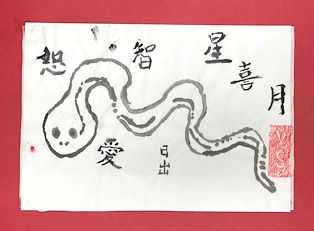 恕 智 星 喜 月
愛 日出